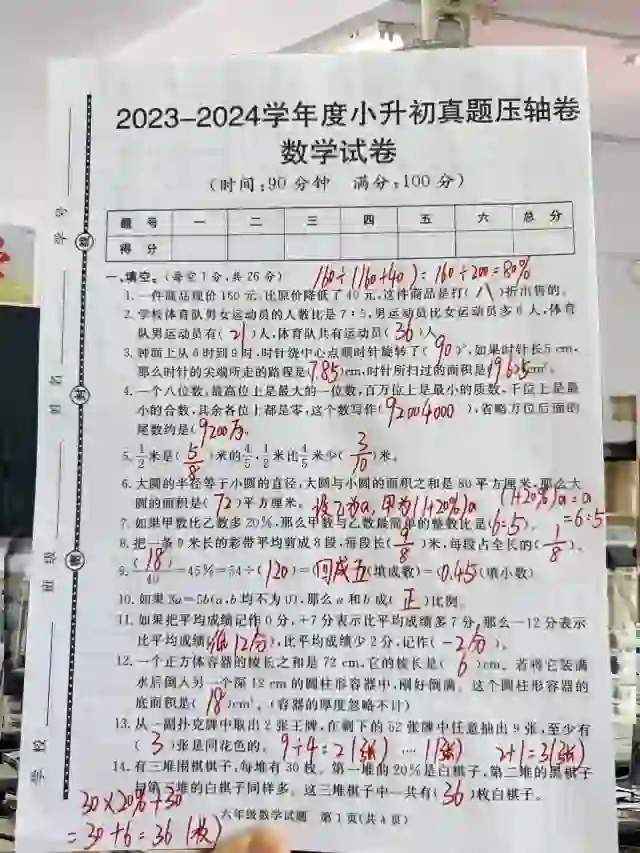 2023-2024学年度小升初真题压轴卷
数学试卷
(时间:90分钟 满分:100分)
题号 一 二 三 四 五 六 总分
得分
学号
姓名
班级
学校
一、填空。(每空1分,共26分)
160÷(160+40)=160÷200=80%
1.一件商品现价160元,比原价降低了40元,这件商品是打(八)折出售的。
2.学校体育队男女运动员的人数比是7:5,男运动员比女运动员多6人,体育
队男运动员有(21)人,体育队共有运动员(36)人。
3.钟面上从6时到9时,时针绕中心点顺时针旋转了(90)°,如果时针长5cm,
那么时针的尖端所走的路程是(7.85)cm,时针所扫过的面积是(19.625)cm²。
4.一个八位数,最高位上是最大的一位数,百万位上是最小的质数,千位上是最
小的合数,其余各位上都是零,这个数写作(92004000),省略万位后面的
尾数约是(9200万)。
5.1/2米是(5/8)米的4/5,1/2米比4/5米少(3/10)米。
6.大圆的半径等于小圆的直径,大圆与小圆的面积之和是80平方厘米,那么大
圆的面积是(72)平方厘米。 设乙为a,甲为(1+20%)a (1+20%)a:a
=6:5
7.如果甲数比乙数多20%,那么甲数与乙数最简单的整数比是(6:5)。
8.把一条9米长的彩带平均剪成8段,每段长(9/8)米,每段占全长的(1/8)。
9.(18)/40=45%=54÷(120)=四成五(填成数)=0.45(填小数)
10.如果8a=5b(a、b均不为0),那么a和b成(正)比例。
11.如果把平均成绩记作0分,+7分表示比平均成绩多7分,那么-12分表示
比平均成绩(低12分),比平均成绩少2分,记作(-2分)。
12.一个正方体容器的棱长之和是72cm,它的棱长是(6)cm。若将它装满
水后倒入另一个深12cm的圆柱形容器中,刚好倒满。这个圆柱形容器的
底面积是(18)cm²。(容器的厚度忽略不计)
13.从一副扑克牌中取出2张王牌,在剩下的52张牌中任意抽出9张,至少有
(3)张是同花色的。 9÷4=2(张)……1(张) 2+1=3(张)
14.有三堆围棋棋子,每堆有30枚。第一堆的20%是白棋子,第二堆的黑棋子
与第三堆的白棋子同样多。这三堆棋子中一共有(36)枚白棋子。
30×20%+30
=30+6=36(枚)
六年级数学试题 第1页(共4页)